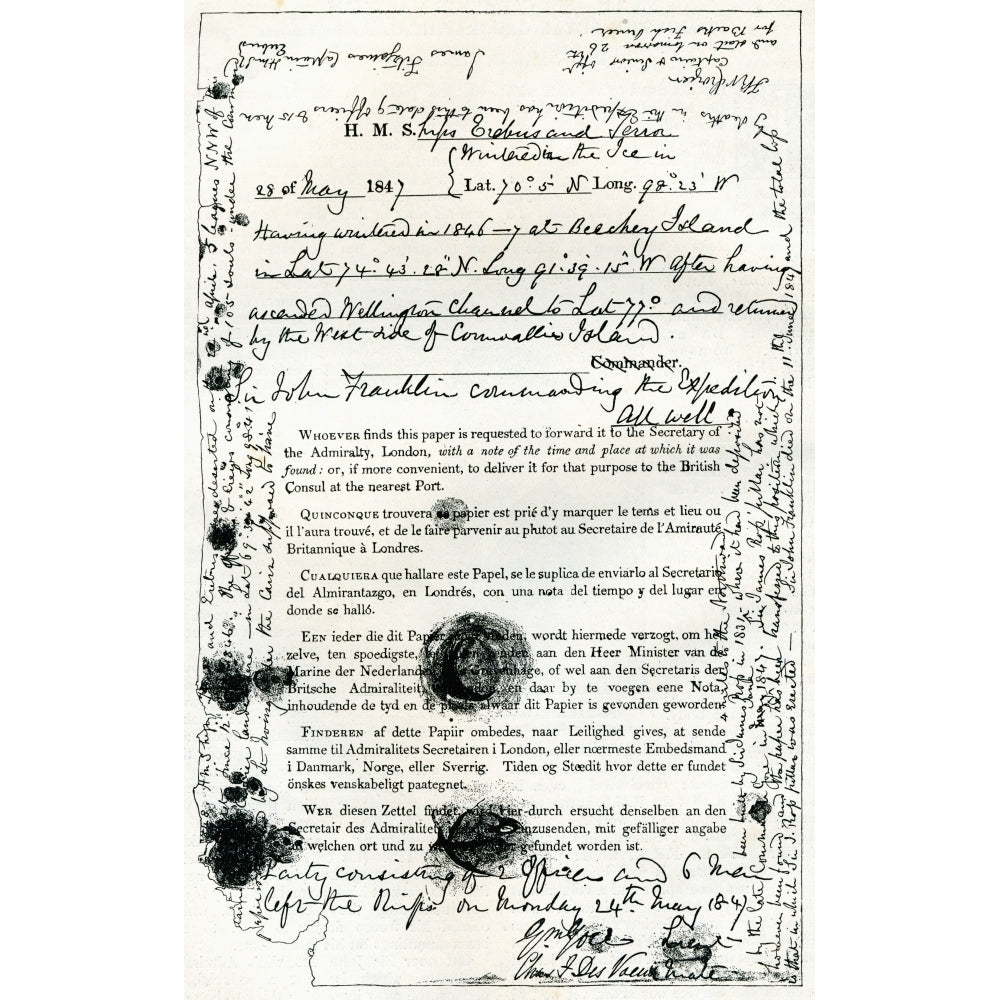 H. M. Ships Erebus and Terror
Wintered in the Ice in
28 of May 1847 Lat. 70° 5' N Long. 98° 23' W
Having wintered in 1846–7 at Beechey Island
in Lat 74° 43' 28" N. Long 91° 39' 15" W after having
ascended Wellington Channel to Lat 77° and returned
by the West side of Cornwallis Island.
Commander.
Sir John Franklin commanding the Expedition
All well
WHOEVER finds this paper is requested to forward it to the Secretary of
the Admiralty, London, with a note of the time and place at which it was
found: or, if more convenient, to deliver it for that purpose to the British
Consul at the nearest Port.
QUINCONQUE trouvera papier est prié d'y marquer le tems et lieu ou
il l'aura trouvé, et de le faire parvenir au plutot au Secretaire de l'Amirauté
Britannique à Londres.
CUALQUIERA que hallare este Papel, se le suplica de enviarlo al Secretario
del Almirantazgo, en Londrés, con una nota del tiempo y del lugar en
donde se halló.
EEN ieder die dit Papier vinden, wordt hiermede verzogt, om het
zelve, ten spoedigste, aan den Heer Minister van de
Marine der Nederlanden Gravenhage, of wel aan den Secretaris der
Britsche Admiraliteit, en daar by te voegen eene Nota,
inhoudende de tyd en de plaats alwaar dit Papier is gevonden geworden
FINDEREN af dette Papiir ombedes, naar Leilighed gives, at sende
samme til Admiralitets Secretairen i London, eller nœrmeste Embedsmand
i Danmark, Norge, eller Sverrig. Tiden og Stœdit hvor dette er fundet
önskes venskabeligt paategnet.
WER diesen Zettel findet, wird hier-durch ersucht denselben an den
Secretair des Admiralitets einzusenden, mit gefälliger angabe
welchen ort und zu gefundet worden ist.
Party consisting of 2 Officers and 6 Men
left the Ships on Monday 24th May 1847
Gm Gore Lieut
Chas F Des Voeux Mate
H M Ships and Erebus were deserted on 22nd April, 5 leagues NNW of
since 1846. The officers & crews consisting of 105 souls under the Command
landed here in Lat 69° 37' 42" Long 98° 41'
by Lt Irving under the Cairn supposed to have
been built by Sir James Ross in 1831 4 miles to the Northward where it had been deposited
by the late Commander Gore in June 1847. Sir James Ross' pillar has not
however been found and the paper has been transferred to this position which
is that in which Sir J. Ross pillar was erected — Sir John Franklin died on the 11th June 1847 and the total loss
by deaths in the Expedition has been to this date 9 officers & 15 men
James Fitzjames Captain HMS Erebus
F R M Crozier
Captain & Senior Offr
and start on tomorrow 26th
for Backs Fish River